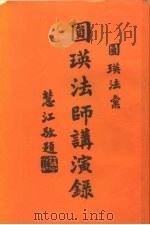 圓瑛法彙
圓瑛法師講演錄
慧江敬題